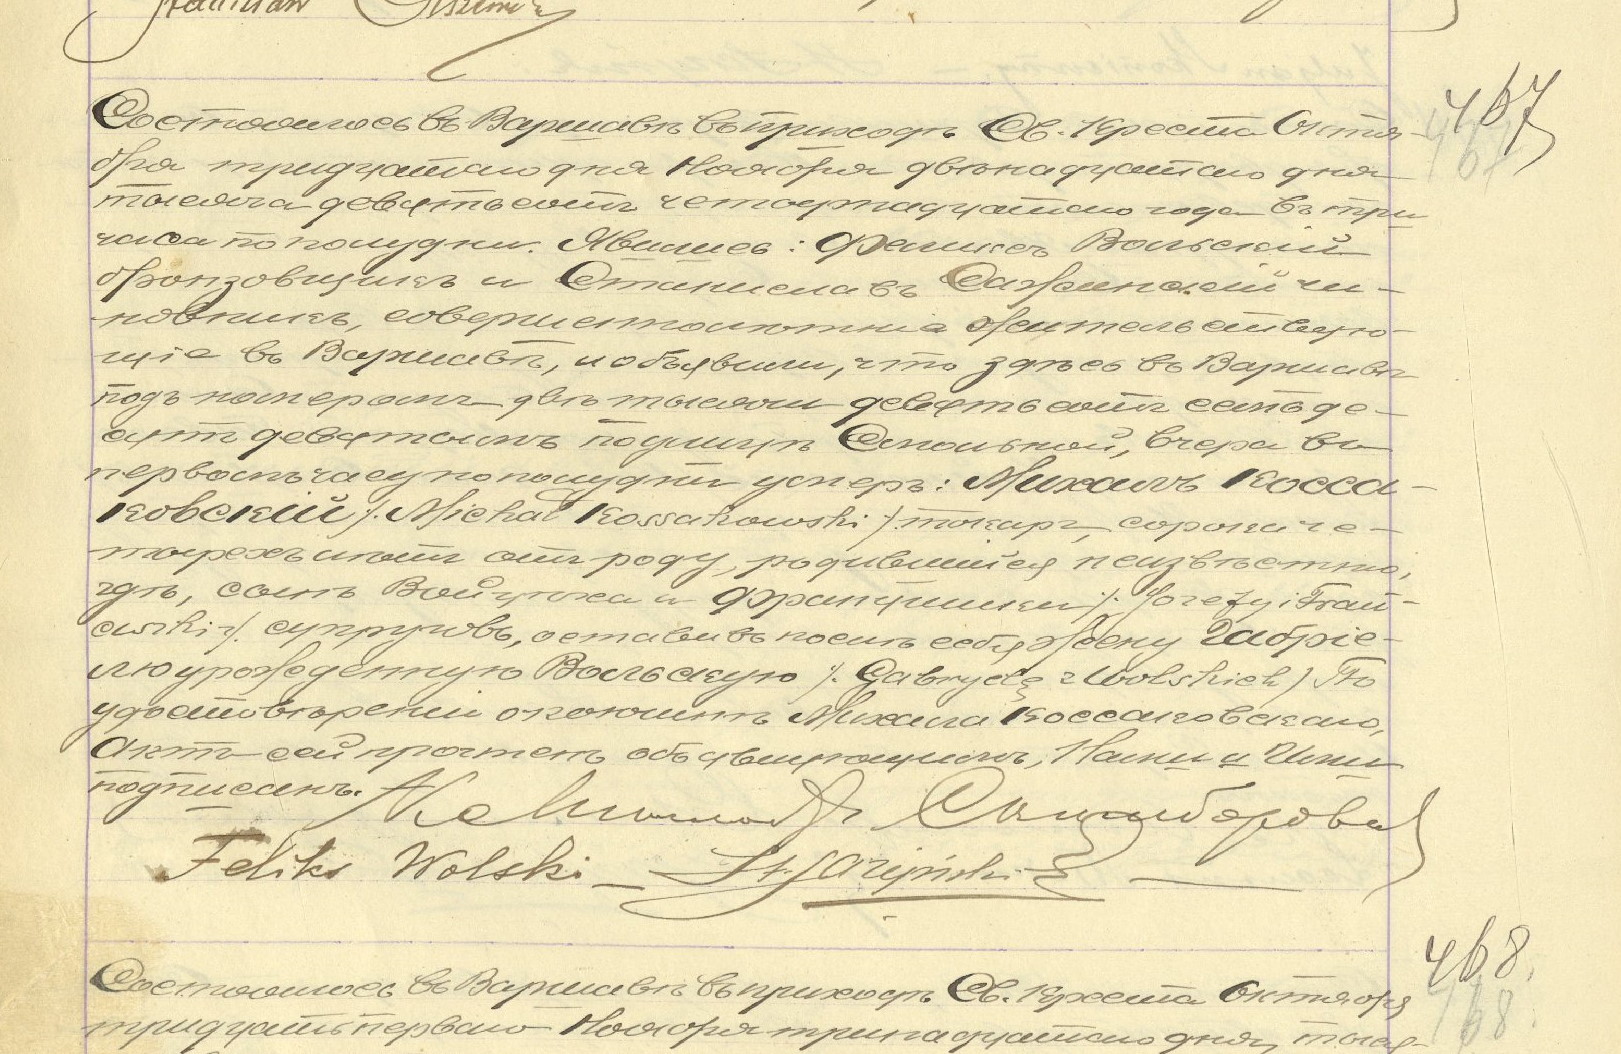 467
Состоялось въ Варшавѣ въ приходѣ Св. Креста Октя-
бря тридцатаго дня Ноября двѣнадцатаго дня
тысяча девятьсотъ четырнадцатаго года въ три
часа по полудни. Явились: Феликсъ Вольскій
бронзовщикъ и Станиславъ Сажинскій чи-
новникъ, совершеннолѣтніе жительствую-
щіе въ Варшавѣ, и объявили, что здѣсь въ Варшавѣ
подъ номеромъ двѣ тысячи девятьсотъ семьде-
сятъ девятымъ по улицѣ Смольной, вчера въ
первомъ часу по полудни умеръ: Михаилъ Косса-
ковскій /: Michał Kossakowski :/ токарь, сорока че-
тырехъ лѣтъ отъ роду, родившійся неизвѣстно,
гдѣ, сынъ Войцѣха и Францишки /: Józefy i Fran-
ciszki :/ супруговъ, оставивъ послѣ себя жену Габріе-
лю урожденную Вольскую /: Gabryelę z Wolskich :/ По
удостовѣреніи о кончинѣ Михаила Коссаковскаго,
Актъ сей прочтенъ объявляющимъ, Нами и Ими
подписанъ.
Feliks Wolski St. Sażyński
468
Состоялось въ Варшавѣ въ приходѣ Св. Креста Октября
тридцать перваго Ноября тринадцатаго дня, тыся-